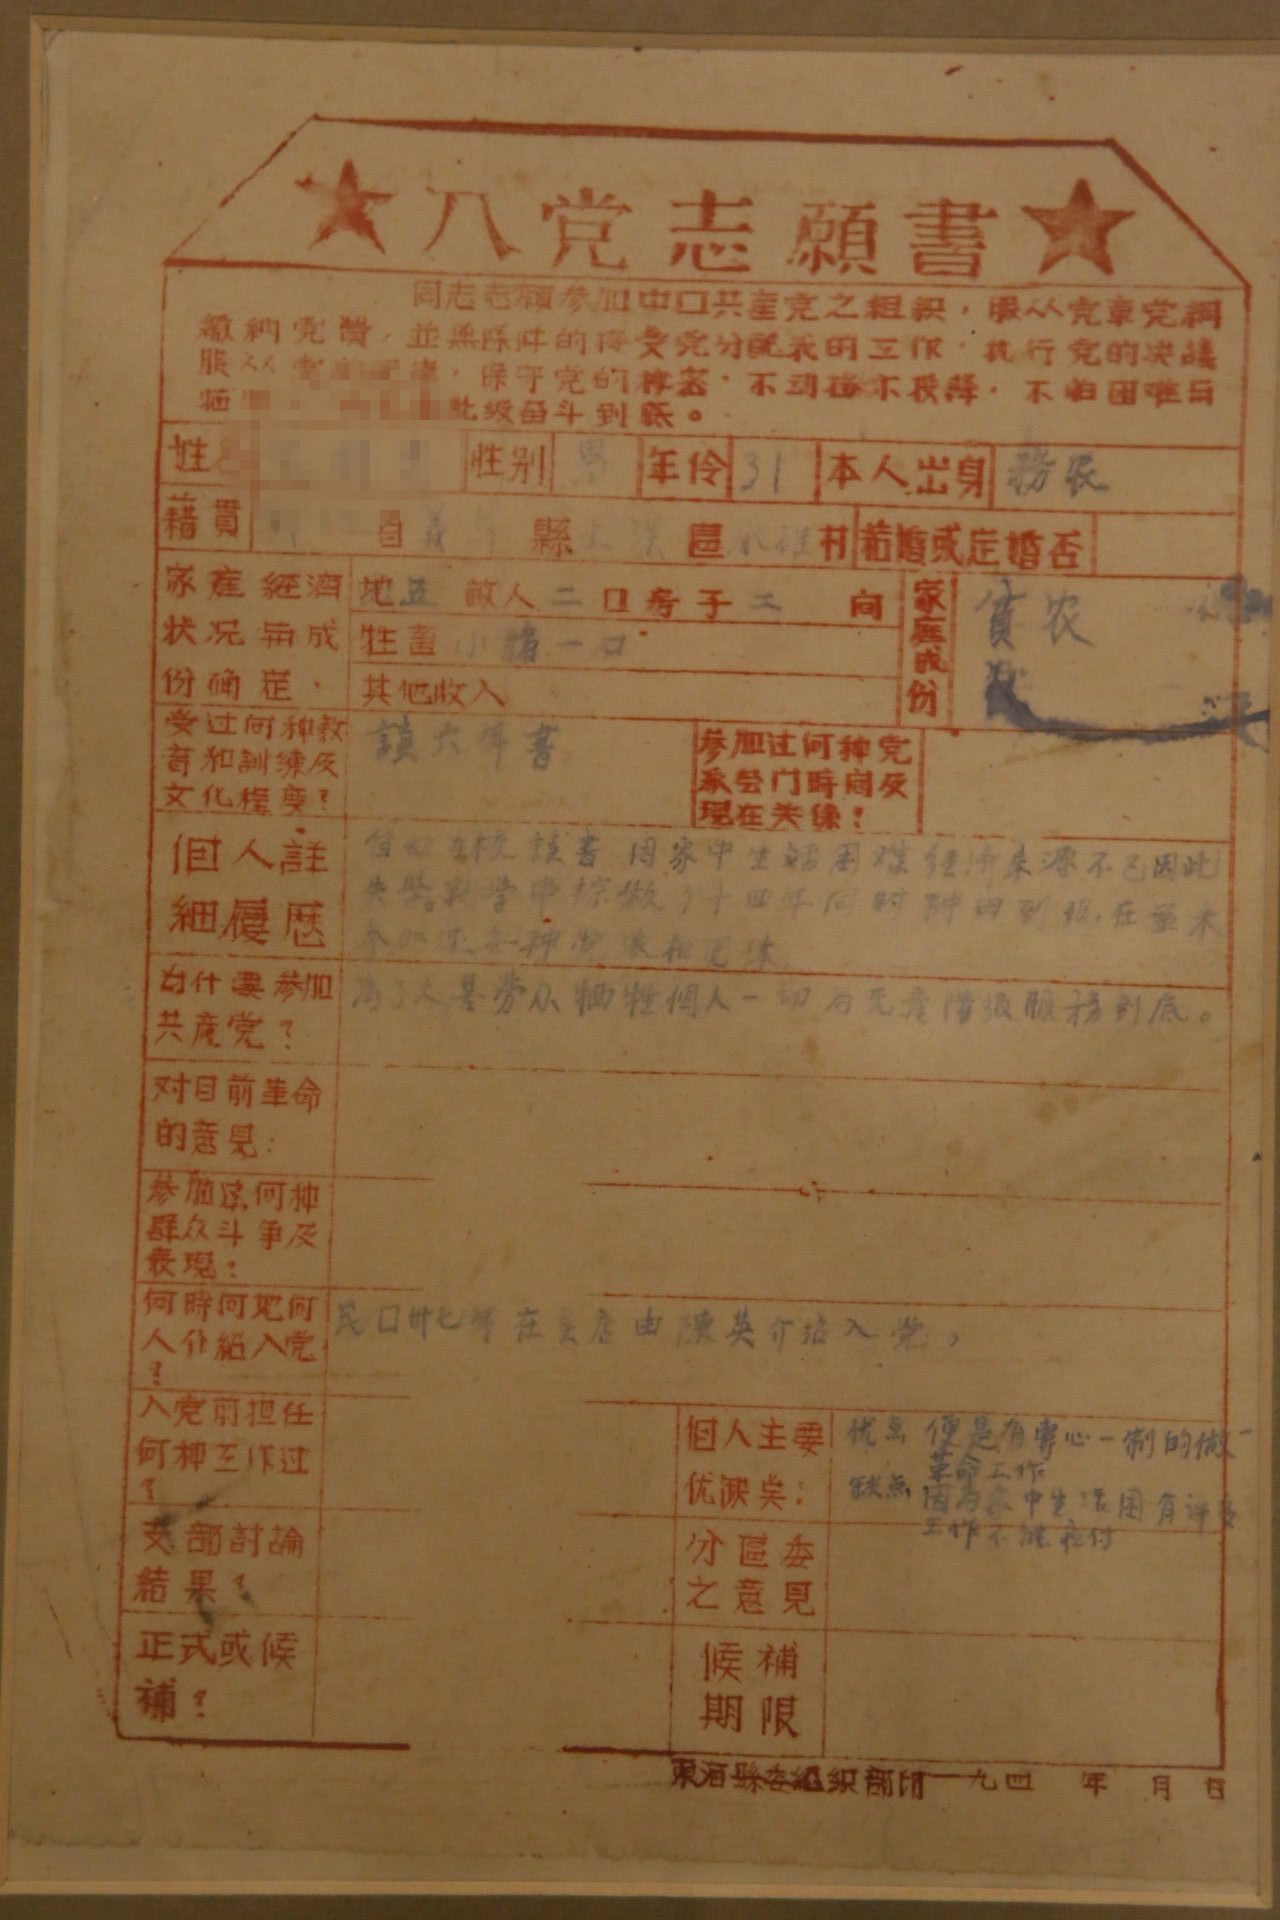 入党志願書
同志志願参加中口共產党之組织，服从党章党綱
繳納党费，並無條件的接受党分配我的工作，执行党的决議
服从党，保守党的秘密，不动摇不投降，不怕困难与
牺 此级奋斗到底。
姓 性别 男 年伶 31 本人出身 務农
藉貫 自 義 縣 區 村 結婚或定婚否
家産經濟状况与成份确定． 地五畝人二口房子二间 家庭成份 貧农
牲畜 小猪一口
其他收入
受过何种教育和訓練及文化程度？ 讀六年書 参加过何种党派会门時间及現在关係？
個人詳細履歷 自幼在校讀書 因家中生活困难 经济来源不已因此
失学 做了十四年
参加过 团体
为什要参加共産党？ 為了 劳众牺牲個人一切为无産階级服務到底。
对目前革命的意見：
参加过何种群众斗争及表現？
何時何地何人介紹入党？ 民口卅七年在 店由陳英介绍入党，
入党前担任何种工作过？ 個人主要优缺点： 优点 便是有專心一制的做一
革命工作
缺点 因为家中生活困有許多
工作不能应付
支部討論結果？ 分區委之意見
正式或候補？ 候補期限
東海縣委組织部印 一九四 年 月 日